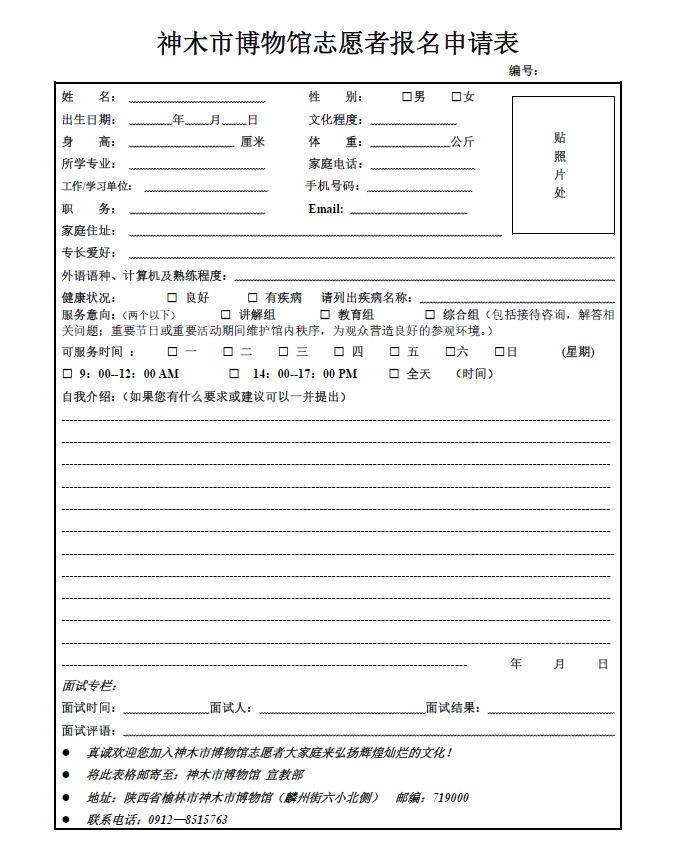 神木市博物馆志愿者报名申请表
编号：
姓 名： 性 别： □男 □女
出生日期： 年 月 日 文化程度：
身 高： 厘米 体 重： 公斤
所学专业： 家庭电话：
工作/学习单位： 手机号码：
职 务： Email:
贴
照
片
处
家庭住址：
专长爱好：
外语语种、计算机及熟练程度：
健康状况： □ 良好 □ 有疾病 请列出疾病名称：
服务意向：（两个以下） □ 讲解组 □ 教育组 □ 综合组（包括接待咨询，解答相
关问题；重要节日或重要活动期间维护馆内秩序，为观众营造良好的参观环境。）
可服务时间 ： □ 一 □ 二 □ 三 □ 四 □ 五 □六 □日 (星期)
□ 9：00--12：00 AM □ 14：00--17：00 PM □ 全天 （时间）
自我介绍：（如果您有什么要求或建议可以一并提出）
年 月 日
面试专栏：
面试时间： 面试人： 面试结果：
面试评语：
● 真诚欢迎您加入神木市博物馆志愿者大家庭来弘扬辉煌灿烂的文化！
● 将此表格邮寄至：神木市博物馆 宣教部
● 地址：陕西省榆林市神木市博物馆（麟州街六小北侧） 邮编：719000
● 联系电话：0912—8515763